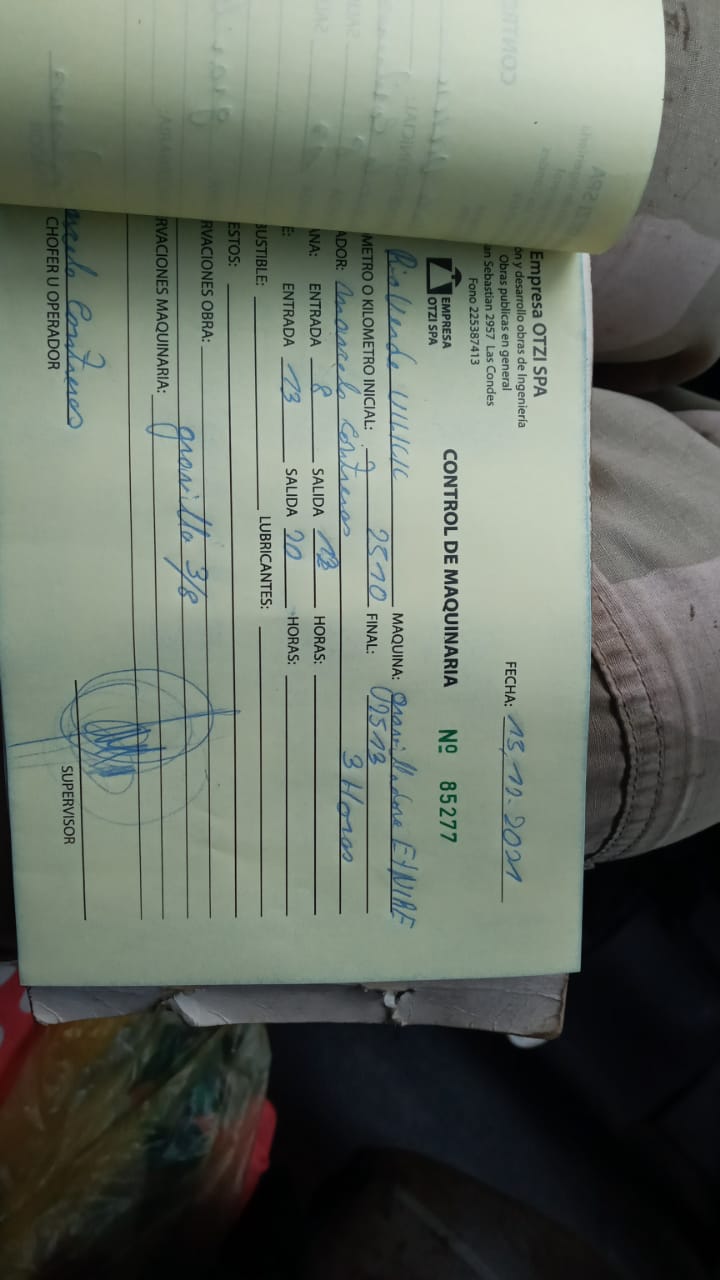 Empresa OTZI SPA
on y desarrollo obras de Ingeniería
Obras publicas en general
an Sebastian 2957 Las Condes
Fono 225387413
FECHA: 13,12-2021
EMPRESA
OTZI SPA
CONTROL DE MAQUINARIA Nº 85277
Rio Verde MAQUINA: gravilladora
OMETRO O KILOMETRO INICIAL: 2510 FINAL: 2513
ADOR: Marcelo Contreras 3 Horas
ANA: ENTRADA 8 SALIDA 12 HORAS:
E: ENTRADA 13 SALIDA 20 HORAS:
BUSTIBLE: LUBRICANTES:
ESTOS:
RVACIONES OBRA:
gravilla 3/8
RVACIONES MAQUINARIA:
arcelo Contreras
CHOFER U OPERADOR
SUPERVISOR